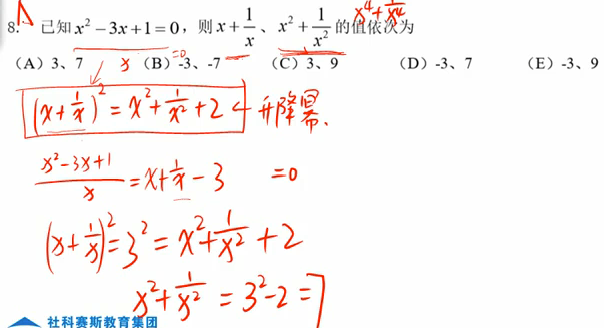 A
x⁴+1/x⁴
8. 已知 x²−3x+1=0，则 x+1/x、x²+1/x² 的值依次为
x =0
（A）3、7 （B）-3、-7 （C）3、9 （D）-3、7 （E）-3、9
(x+1/x)²=x²+1/x²+2 ← 升降幂.
x²-3x+1/x = x+1/x-3 =0
(x+1/x)²=3²=x²+1/x²+2
x²+1/x²=3²-2=7
社科赛斯教育集团